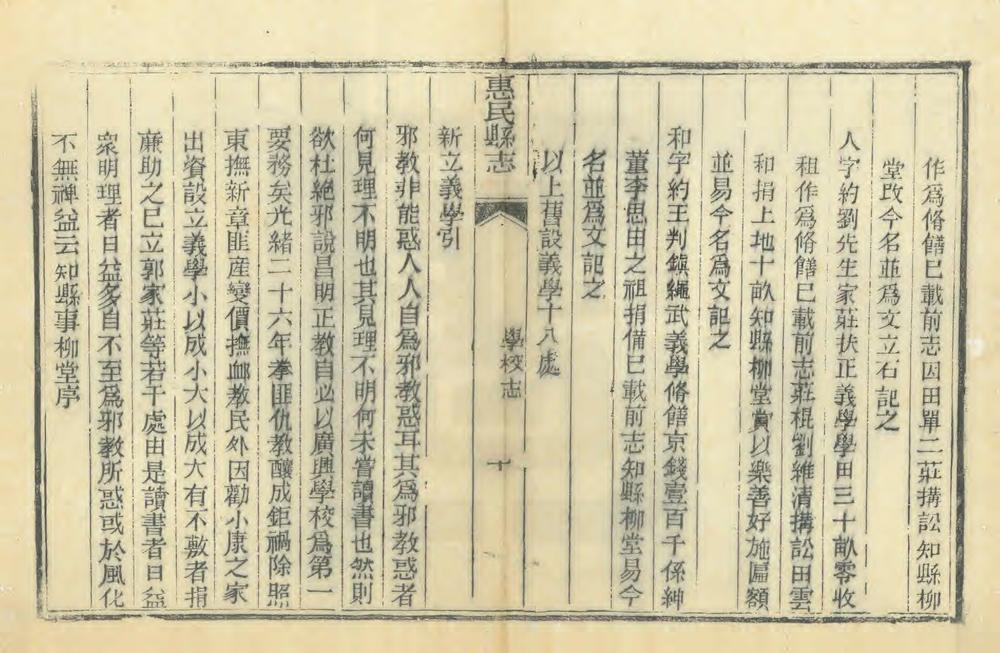 作爲脩饍已載前志因田單二莊搆訟知縣柳
堂改今名並爲文立石記之
人字約劉先生家莊扶正義學學田三十畝零收
租作爲脩饍已載前志莊棍劉維清搆訟田雲
和捐上地十畝知縣柳堂賞以樂善好施匾額
並易今名爲文記之
和字約王判鎮繩武義學脩饍京錢壹百千係紳
董李思田之祖捐備已載前志知縣柳堂易今
名並爲文記之
以上舊設義學十八處
惠民縣志
學校志
十
新立義學引
邪教非能惑人人自爲邪教惑耳其爲邪教惑者
何見理不明也其見理不明何未嘗讀書也然則
欲杜絕邪說昌明正教自必以廣興學校爲第一
要務矣光緒二十六年拳匪仇教釀成鉅禍除照
東撫新章匪産變價撫卹教民外因勸小康之家
出資設立義學小以成小大以成大有不敷者捐
廉助之已立郭家莊等若干處由是讀書者日益
衆明理者日益多自不至爲邪教所惑或於風化
不無禆益云知縣事柳堂序